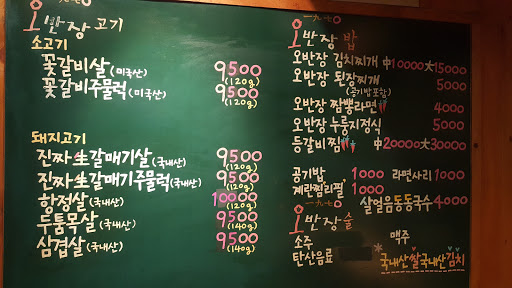 一九七0
오반장 고기
소고기
꽃갈비살(미국산) 9500(120g)
꽃갈비주물럭(미국산) 9500(120g)
돼지고기
진짜生갈매기살(국내산) 9500(120g)
진짜生갈매기주물럭(국내산) 9500(120g)
항정살(국내산) 10000(120g)
두툼목살(국내산) 9500(140g)
삼겹살(국내산) 9500(140g)
一九七0
오반장 밥
오반장 김치찌개 中10000大15000
오반장 된장찌개 5000
(공기밥포함)
오반장 짬뽕라면 4000
오반장 누룽지정식 5000
등갈비찜 中20000大30000
공기밥 1000 라면사리 1000
계란찜리필 1000
살얼음동동국수 4000
一九七0
오반장술
소주 맥주
탄산음료
국내산쌀국내산김치